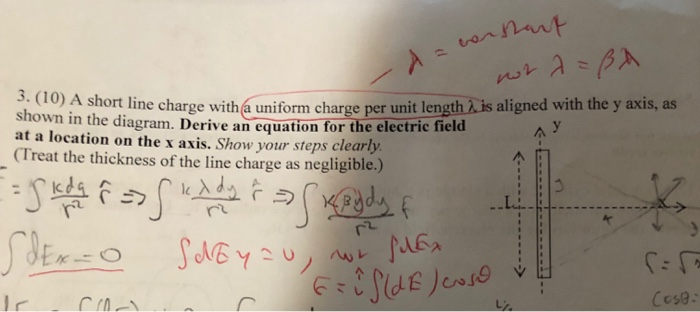 λ = constant
not λ = βλ
3. (10) A short line charge with a uniform charge per unit length λ is aligned with the y axis, as
shown in the diagram. Derive an equation for the electric field
at a location on the x axis. Show your steps clearly.
(Treat the thickness of the line charge as negligible.)
y
= ∫ kdq/r² r̂ => ∫ kλdy/r² r̂ => ∫ kβydy/r² r̂
L
x
∫dEx = 0
∫dEy = 0, not ∫dEx
E = î ∫(dE) cosθ
r = √
cosθ =